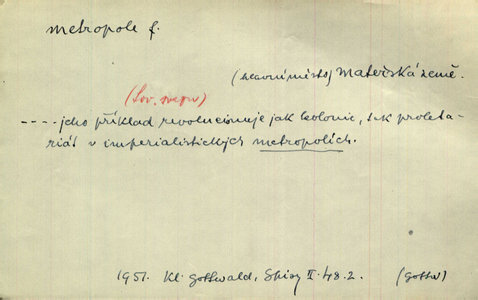 metropole f.
(hlavní město) Mateřská země.
(Sov. svazu)
----jeho příklad revolucionuje jak kolonie, tak proleta-
riát v imperialistických metropolích.
1951. Kl. Gottwald, Spisy II. 48.2. (Gottw)